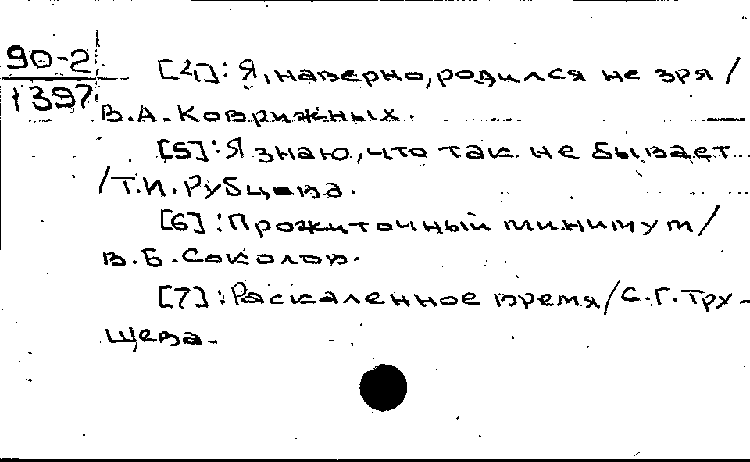 90-2
1397
[4]: Я, наверно, родился не зря /
В.А. Коврижных.
[5]: Я знаю, что так не бывает
/ Т.И. Рубцова.
[6]: Прожиточный минимум /
В.Б. Соколов.
[7]: Раскаленное время / С.Г. Тру-
щева.